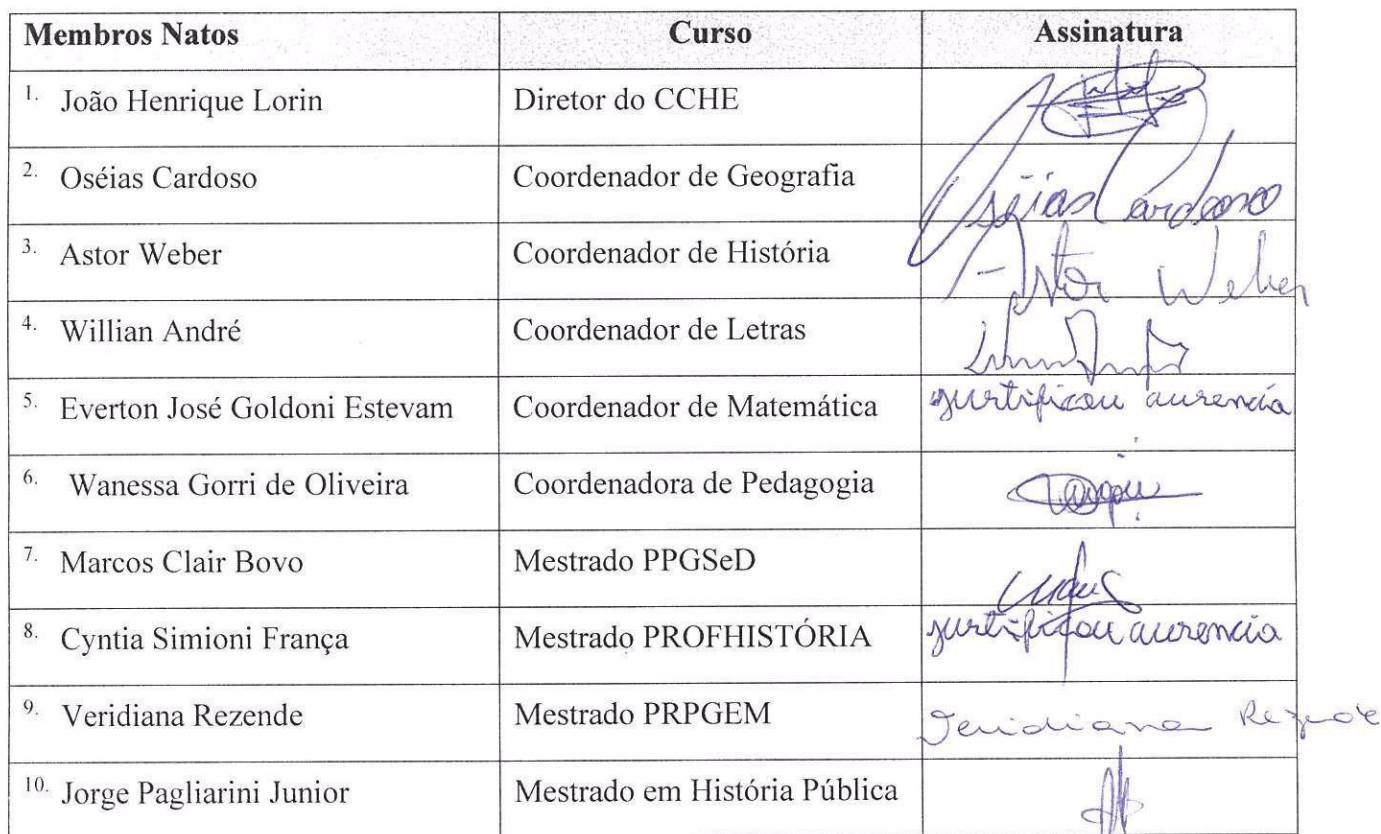 Membros Natos Curso Assinatura
1. João Henrique Lorin Diretor do CCHE
2. Oséias Cardoso Coordenador de Geografia Oséias Cardoso
3. Astor Weber Coordenador de História Astor Weber
4. Willian André Coordenador de Letras
5. Everton José Goldoni Estevam Coordenador de Matemática justificou ausencia
6. Wanessa Gorri de Oliveira Coordenadora de Pedagogia
7. Marcos Clair Bovo Mestrado PPGSeD
8. Cyntia Simioni França Mestrado PROFHISTÓRIA justificou ausencia
9. Veridiana Rezende Mestrado PRPGEM Veridiana Rezende
10. Jorge Pagliarini Junior Mestrado em História Pública